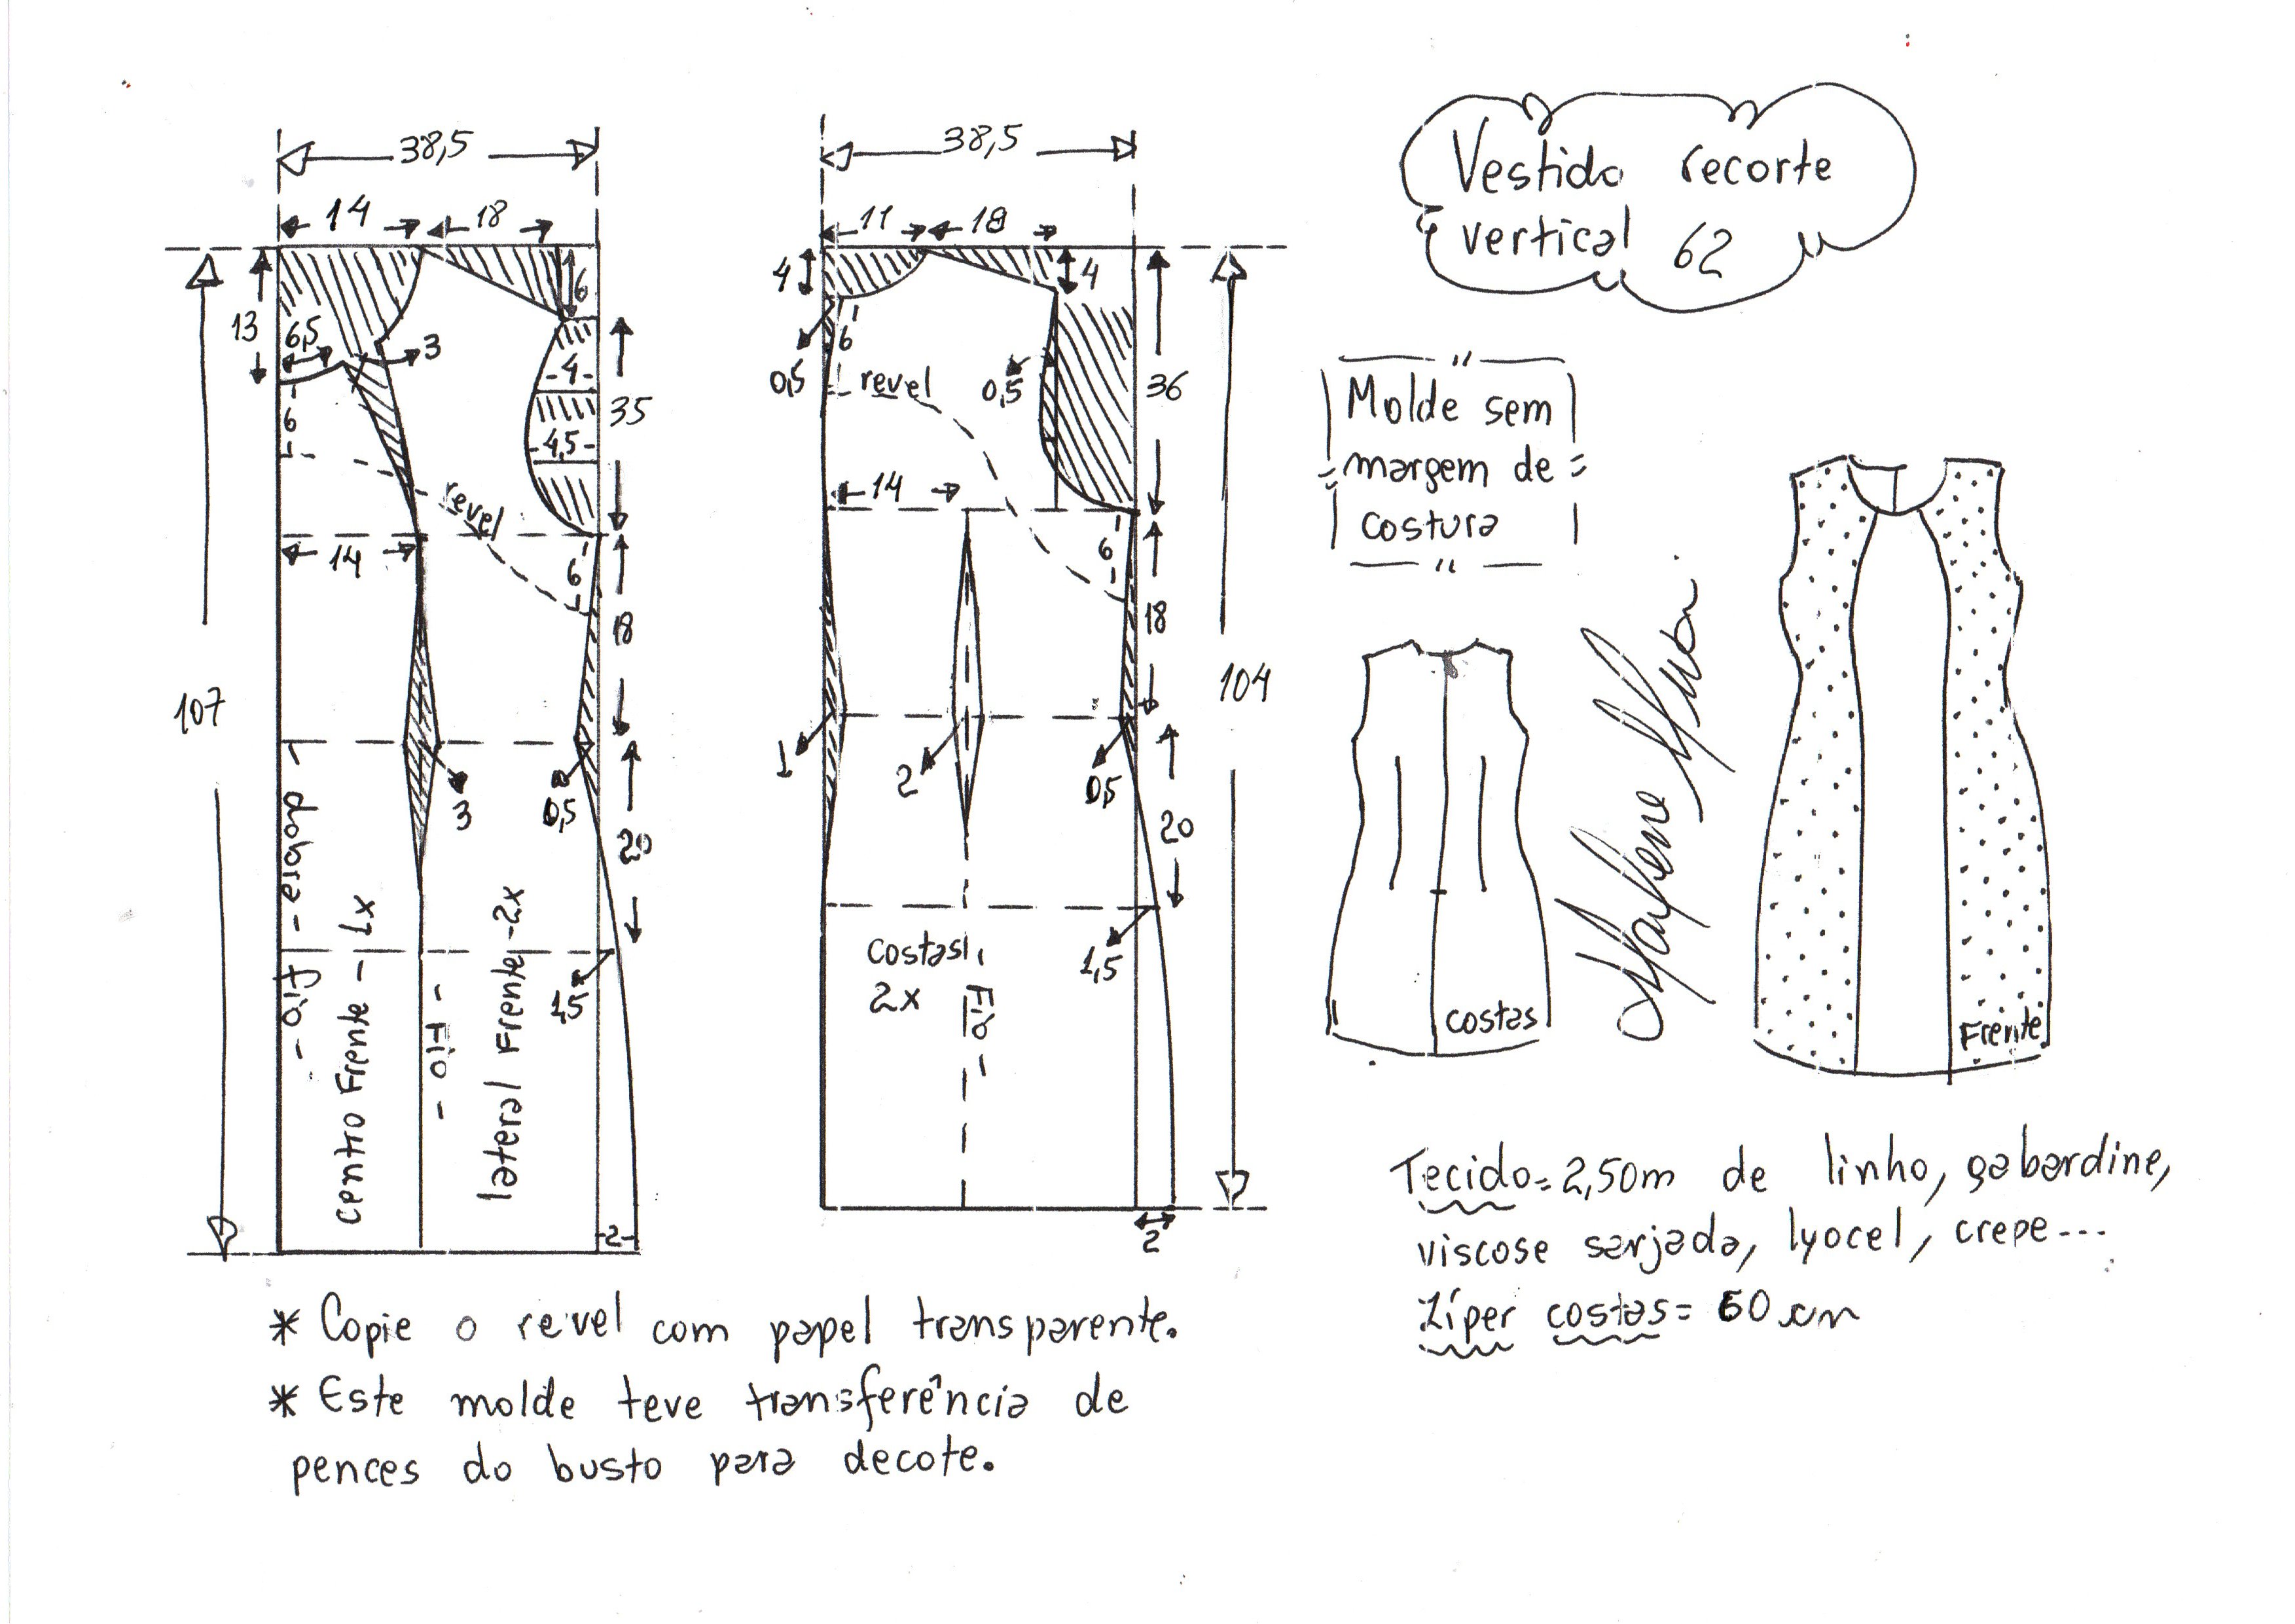 Vestido recorte
vertical 62
Molde sem
margem de
costura
38,5
14
18
13
6,5
3
6
6
4
4,5
35
revel
14
6
18
107
3
0,5
20
dobra - fio -
centro Frente - 1x
- Fio -
lateral Frente - 2x
1,5
2
38,5
11
18
4
4
6
0,5
revel
0,5
36
14
6
18
104
1
2
0,5
20
costas
2x
Fio -
1,5
2
costas
Frente
Tecido = 2,50m de linho, gabardine,
viscose sarjada, lyocel, crepe...
Zíper costas = 60 cm
* Copie o revel com papel transparente.
* Este molde teve transferência de
pences do busto para decote.